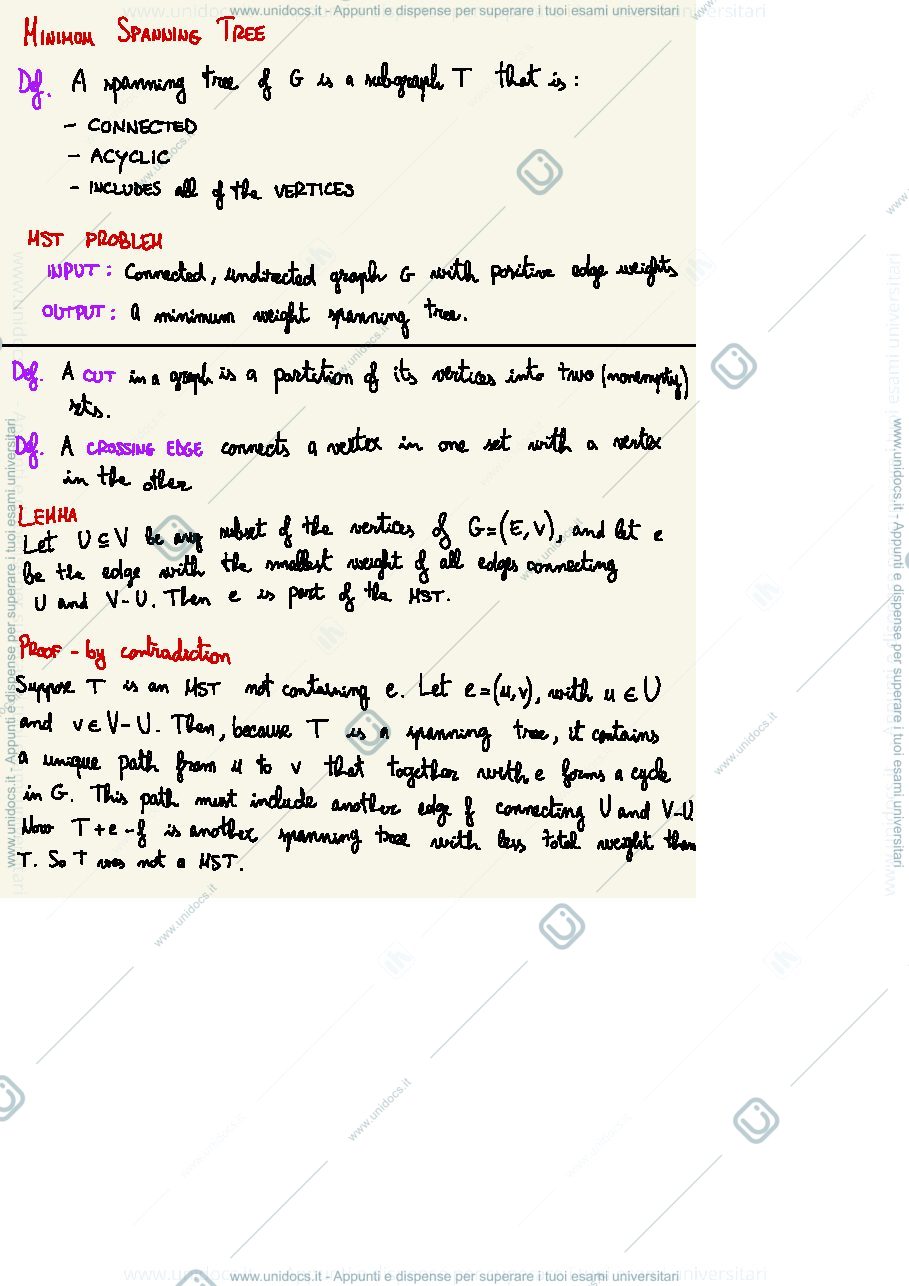 www.unidocs.it - Appunti e dispense per superare i tuoi esami universitari
MINIMUM SPANNING TREE
Def. A spanning tree of G is a subgraph T that is :
- CONNECTED
- ACYCLIC
- INCLUDES all of the VERTICES
MST PROBLEM
INPUT : Connected, undirected graph G with positive edge weights
OUTPUT : A minimum weight spanning tree.
Def. A CUT in a graph is a partition of its vertices into two (nonempty)
sets.
Def. A CROSSING EDGE connects a vertex in one set with a vertex
in the other
LEMMA
Let U ⊆ V be any subset of the vertices of G=(E,V), and let e
be the edge with the smallest weight of all edges connecting
U and V-U. Then e is part of the MST.
PROOF - by contradiction
Suppose T is an MST not containing e. Let e=(u,v), with u ∈ U
and v ∈ V-U. Then, because T is a spanning tree, it contains
a unique path from u to v that together with e forms a cycle
in G. This path must include another edge f connecting U and V-U
Now T+e-f is another spanning tree with less total weight than
T. So T was not a MST.
www.unidocs.it - Appunti e dispense per superare i tuoi esami universitari
www.unidocs.it - Appunti e dispense per superare i tuoi esami universitari
www.unidocs.it
www.unidocs.it
www.unidocs.it
www.unidocs.it - Appunti e dispense per superare i tuoi esami universitari